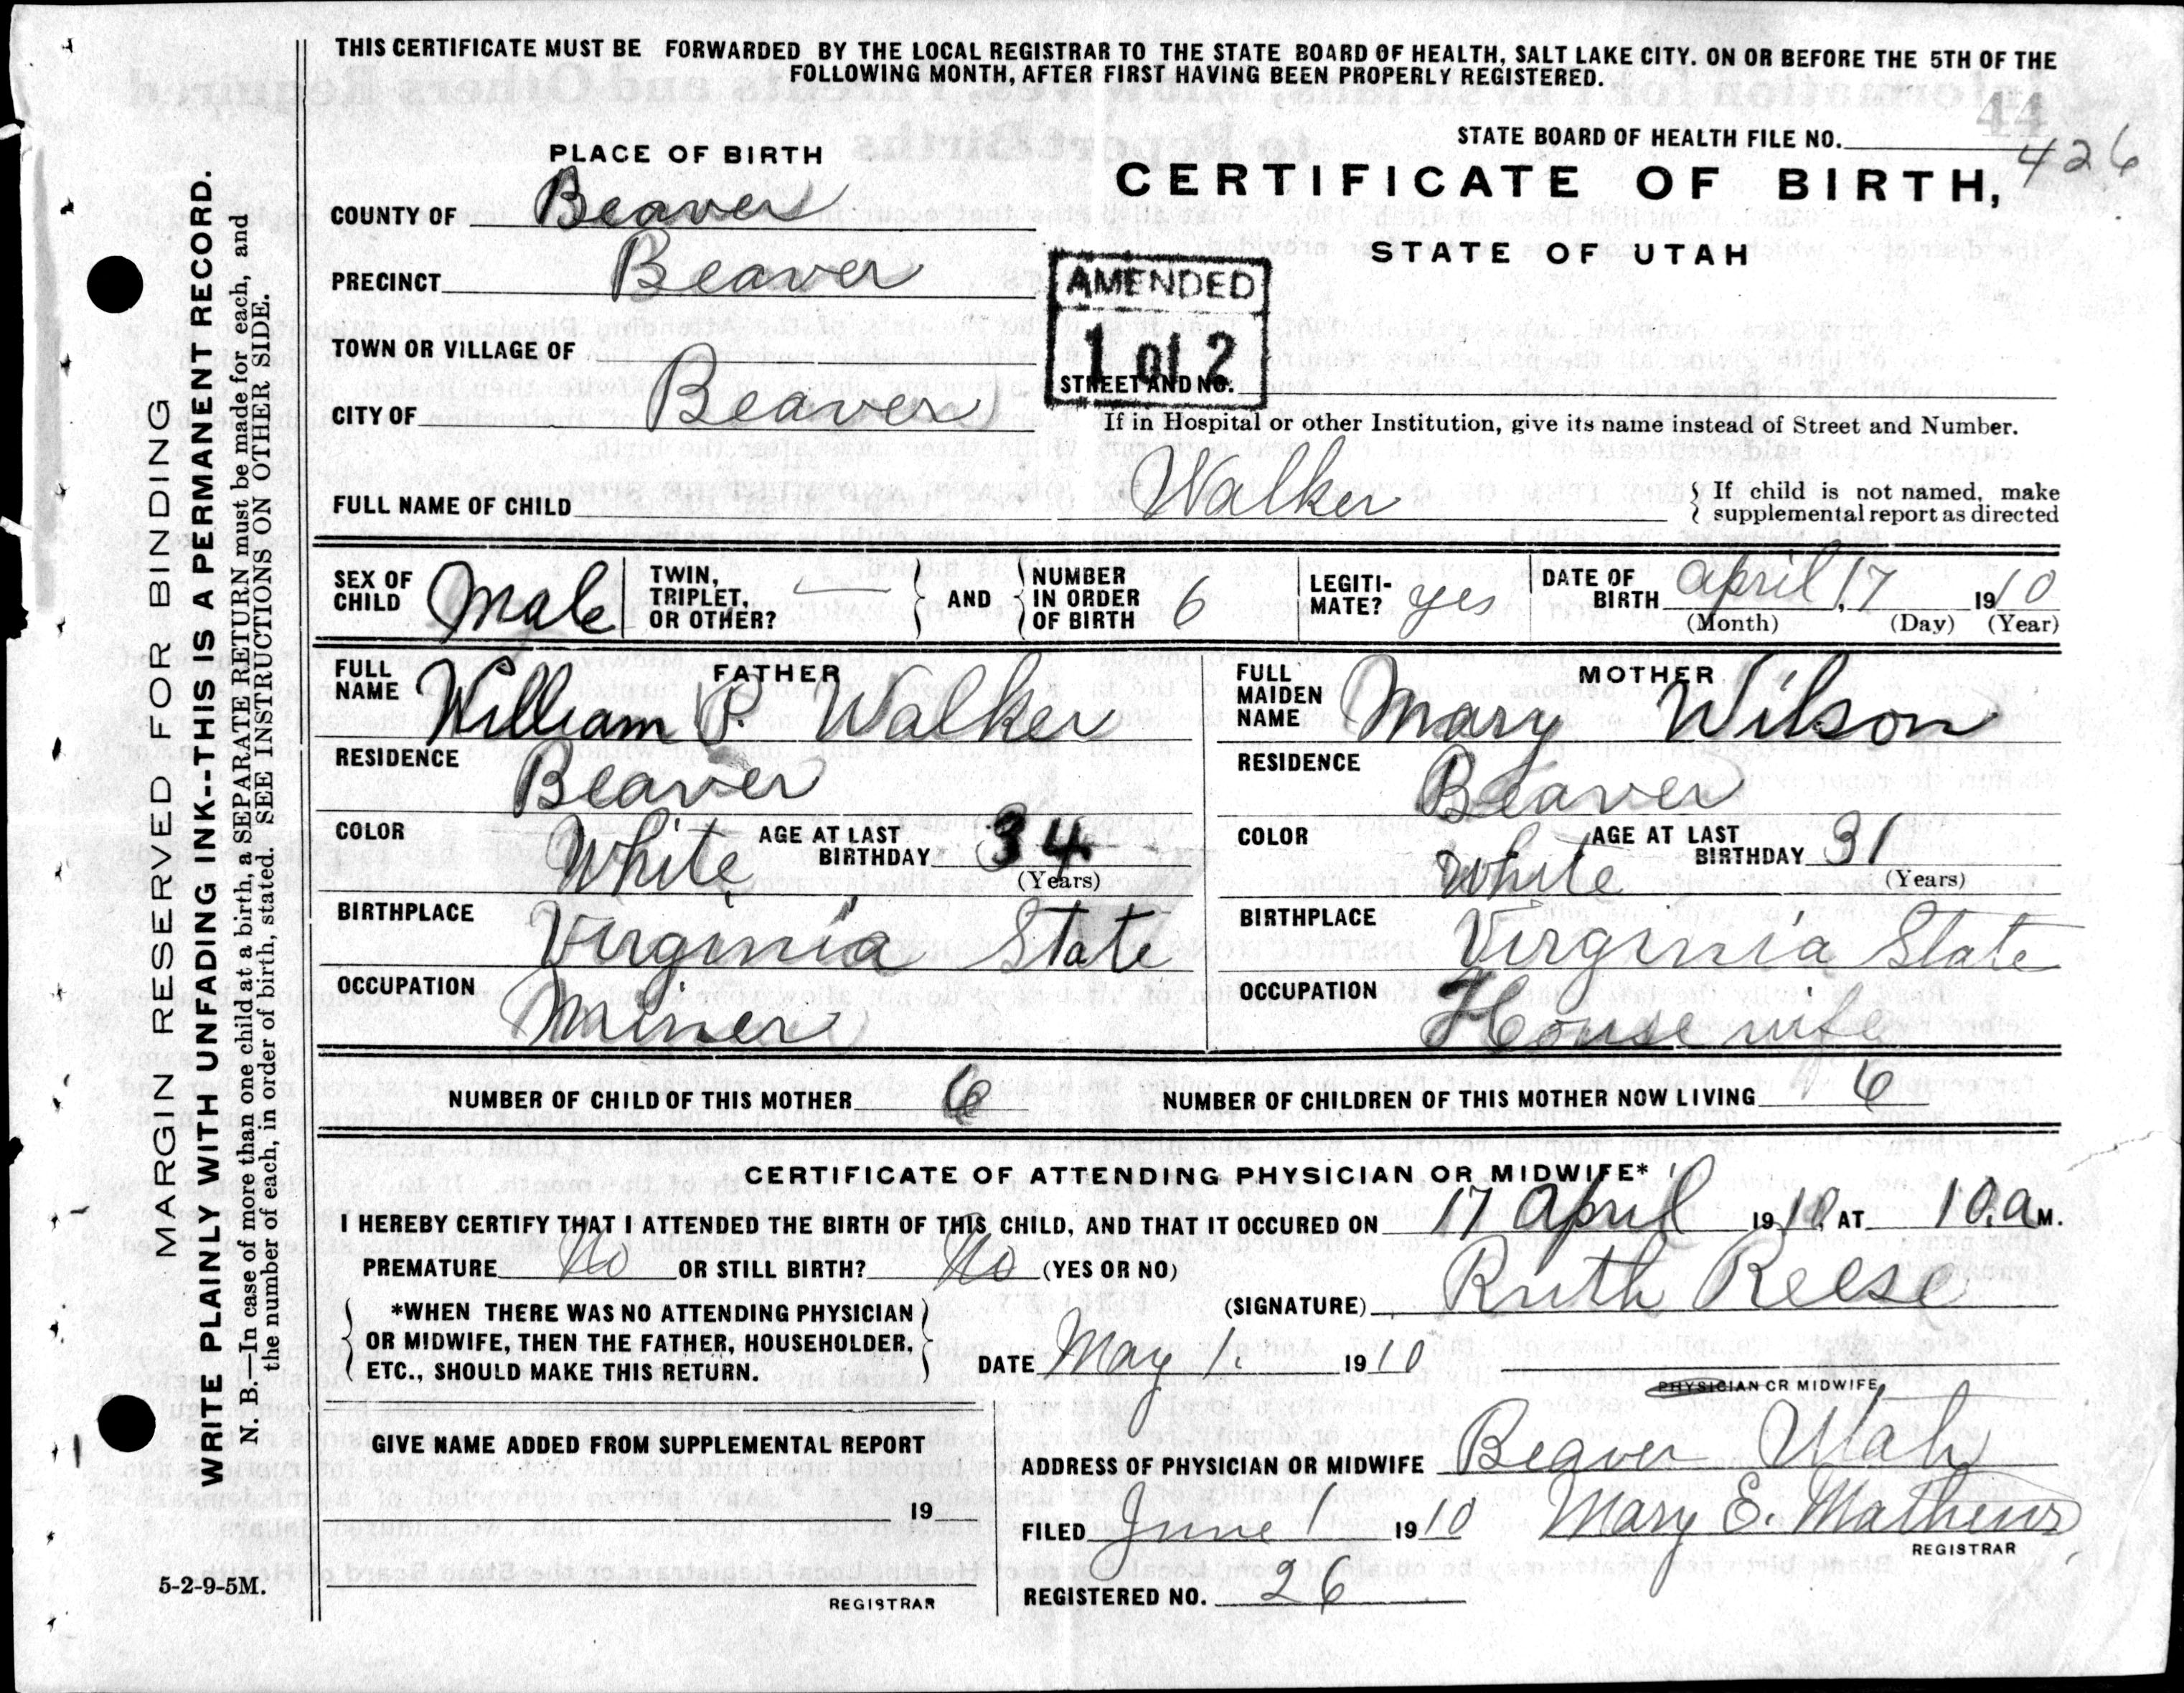 THIS CERTIFICATE MUST BE FORWARDED BY THE LOCAL REGISTRAR TO THE STATE BOARD OF HEALTH, SALT LAKE CITY. ON OR BEFORE THE 5TH OF THE
FOLLOWING MONTH, AFTER FIRST HAVING BEEN PROPERLY REGISTERED.
44
STATE BOARD OF HEALTH FILE NO. 426
PLACE OF BIRTH
CERTIFICATE OF BIRTH,
STATE OF UTAH
COUNTY OF Beaver
PRECINCT Beaver
AMENDED
1 of 2
TOWN OR VILLAGE OF
STREET AND NO.
CITY OF Beaver
If in Hospital or other Institution, give its name instead of Street and Number.
FULL NAME OF CHILD Walker
{ If child is not named, make
{ supplemental report as directed
SEX OF CHILD Male
TWIN, TRIPLET, OR OTHER? —
} AND {
NUMBER IN ORDER OF BIRTH 6
LEGITI-MATE? yes
DATE OF BIRTH April 17 1910
(Month) (Day) (Year)
FATHER
FULL NAME William P. Walker
RESIDENCE Beaver
COLOR White
AGE AT LAST BIRTHDAY 34
(Years)
BIRTHPLACE Virginia State
OCCUPATION Miner
MOTHER
FULL MAIDEN NAME Mary Wilson
RESIDENCE Beaver
COLOR White
AGE AT LAST BIRTHDAY 31
(Years)
BIRTHPLACE Virginia State
OCCUPATION House wife
NUMBER OF CHILD OF THIS MOTHER 6
NUMBER OF CHILDREN OF THIS MOTHER NOW LIVING 6
CERTIFICATE OF ATTENDING PHYSICIAN OR MIDWIFE*
I HEREBY CERTIFY THAT I ATTENDED THE BIRTH OF THIS CHILD, AND THAT IT OCCURED ON 17 April 1910, AT 10.a M.
PREMATURE No OR STILL BIRTH? No (YES OR NO)
*WHEN THERE WAS NO ATTENDING PHYSICIAN
OR MIDWIFE, THEN THE FATHER, HOUSEHOLDER,
ETC., SHOULD MAKE THIS RETURN.
(SIGNATURE) Ruth Reese
DATE May 1. 1910
PHYSICIAN OR MIDWIFE
GIVE NAME ADDED FROM SUPPLEMENTAL REPORT
19
REGISTRAR
ADDRESS OF PHYSICIAN OR MIDWIFE Beaver Utah
FILED June 1 1910 Mary E. Mathews
REGISTRAR
REGISTERED NO. 26
5-2-9-5M.
MARGIN RESERVED FOR BINDING
WRITE PLAINLY WITH UNFADING INK--THIS IS A PERMANENT RECORD.
N. B.—In case of more than one child at a birth, a SEPARATE RETURN must be made for each, and
the number of each, in order of birth, stated. SEE INSTRUCTIONS ON OTHER SIDE.